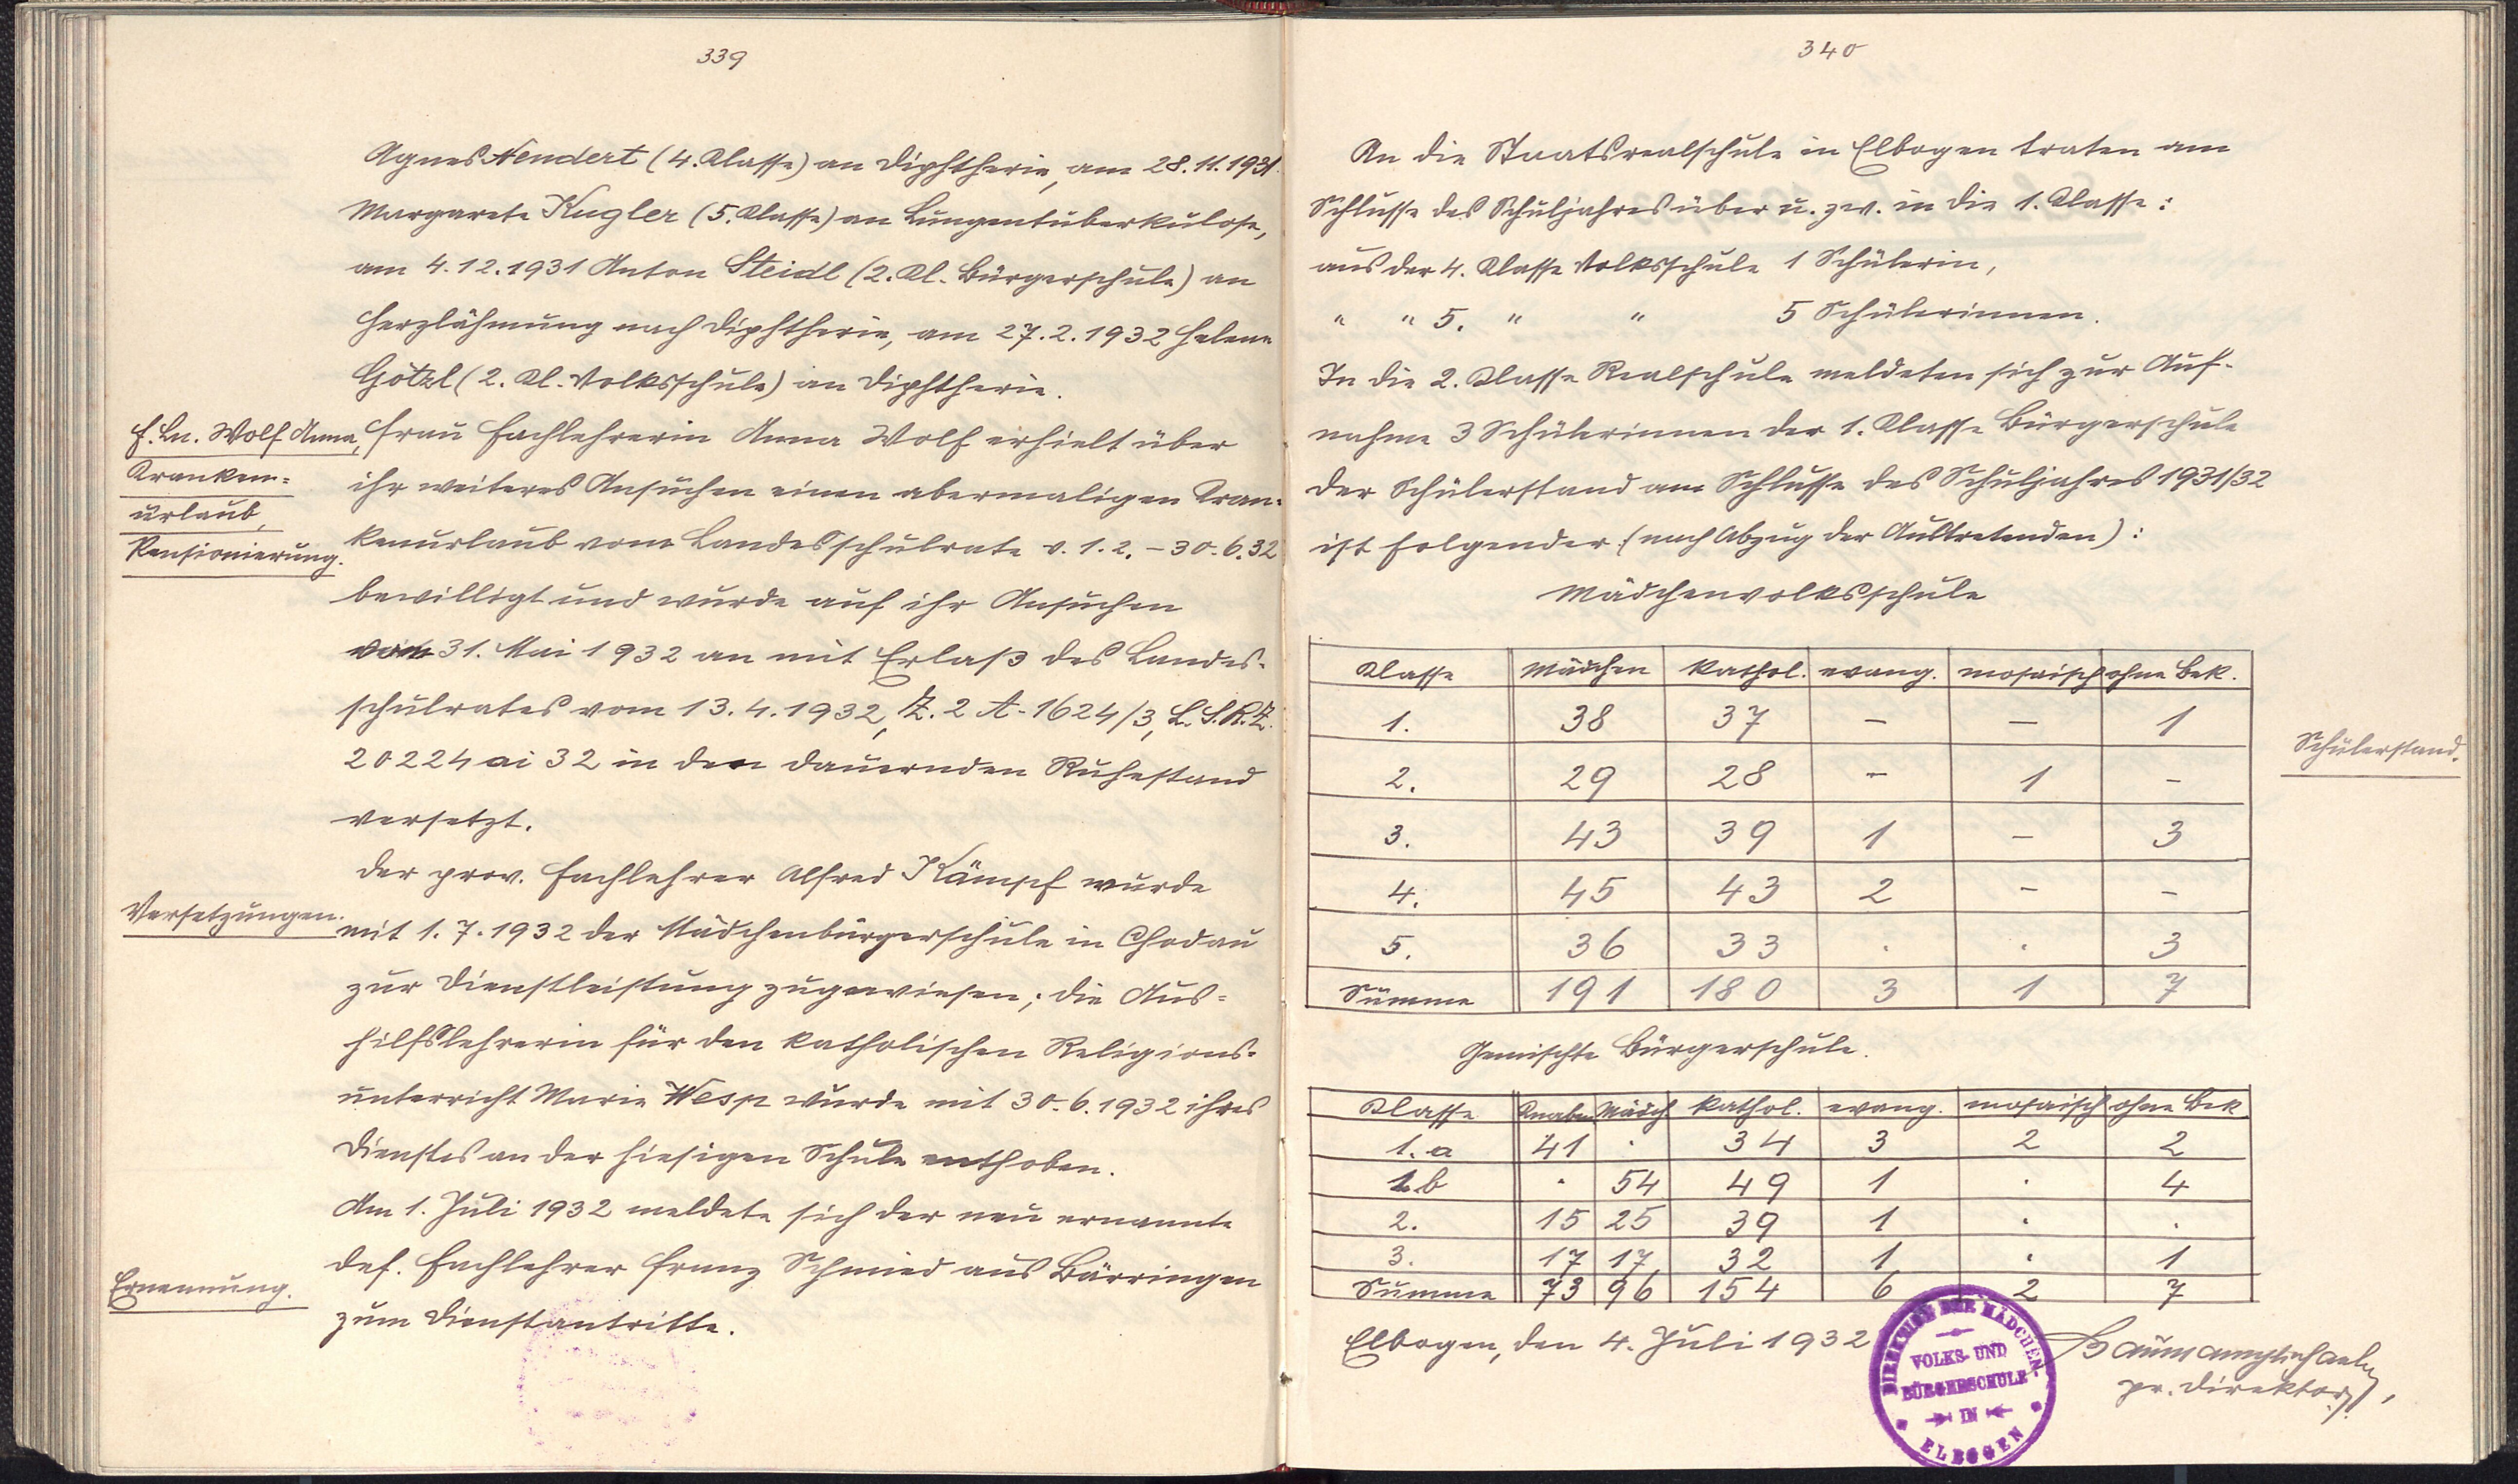 339
Agnes Nendert (4. Klasse) an Diphtherie, am 28.11.1931
Margarete Kugler (5. Klasse) an Lungentuberkulose,
am 4.12.1931 Anton Steidl (2. Kl. Bürgerschule) an
Herzlähmung nach Diphtherie, am 27.2.1932 Helene
Götzl (2. Kl. Volksschule) an Diphtherie.
F. Ln. Wolf Anna,
Kranken-
urlaub,
Pensionierung.
Frau Fachlehrerin Anna Wolf erhielt über
ihr weiteres Ansuchen einen abermaligen Kran-
kenurlaub vom Landesschulrate v. 1.2. - 30.6.32
bewilligt und wurde auf ihr Ansuchen
vom 31. Mai 1932 an mit Erlaß des Landes-
schulrates vom 13.4.1932, Z. 2 A-1624/3, L.S.R.Z.
20224 ai 32 in den dauernden Ruhestand
versetzt.
Der prov. Fachlehrer Alfred Kämpf wurde
Versetzungen.
mit 1.7.1932 der Mädchenbürgerschule in Chodau
zur Dienstleistung zugewiesen; die Aus-
hilfslehrerin für den katholischen Religions-
unterricht Marie Wesp wurde mit 30.6.1932 ihres
Dienstes an der hiesigen Schule enthoben.
Am 1. Juli 1932 meldete sich der neu ernannte
Ernennung.
def. Fachlehrer Franz Schmied aus Bärringen
zum Dienstantritte.
340
An die Staatsrealschule in Elbogen traten am
Schlusse des Schuljahres über u. zw. in die 1. Klasse:
aus der 4. Klasse Volksschule 1 Schülerin,
" " 5. " " 5 Schülerinnen.
In die 2. Klasse Realschule meldeten sich zur Auf-
nahme 3 Schülerinnen der 1. Klasse Bürgerschule
Der Schülerstand am Schlusse des Schuljahres 1931/32
ist folgender (nach Abzug der Austretenden):
Mädchenvolksschule
Klasse Mädchen kathol. evang. mosaisch ohne Bek.
1. 38 37 – – 1
2. 29 28 – 1 –
3. 43 39 1 – 3
4. 45 43 2 – –
5. 36 33 . . 3
Summe 191 180 3 1 7
Schülerstand.
Gemischte Bürgerschule.
Klasse Knaben Mädch. kathol. evang. mosaisch ohne Bek
1. a 41 . 34 3 2 2
1. b . 54 49 1 . 4
2. 15 25 39 1 . .
3. 17 17 32 1 . 1
Summe 73 96 154 6 2 7
Elbogen, den 4. Juli 1932
DIREKTION DER MÄDCHEN-
VOLKS- UND
BÜRGERSCHULE
IN
ELBOGEN
pr. Direktor